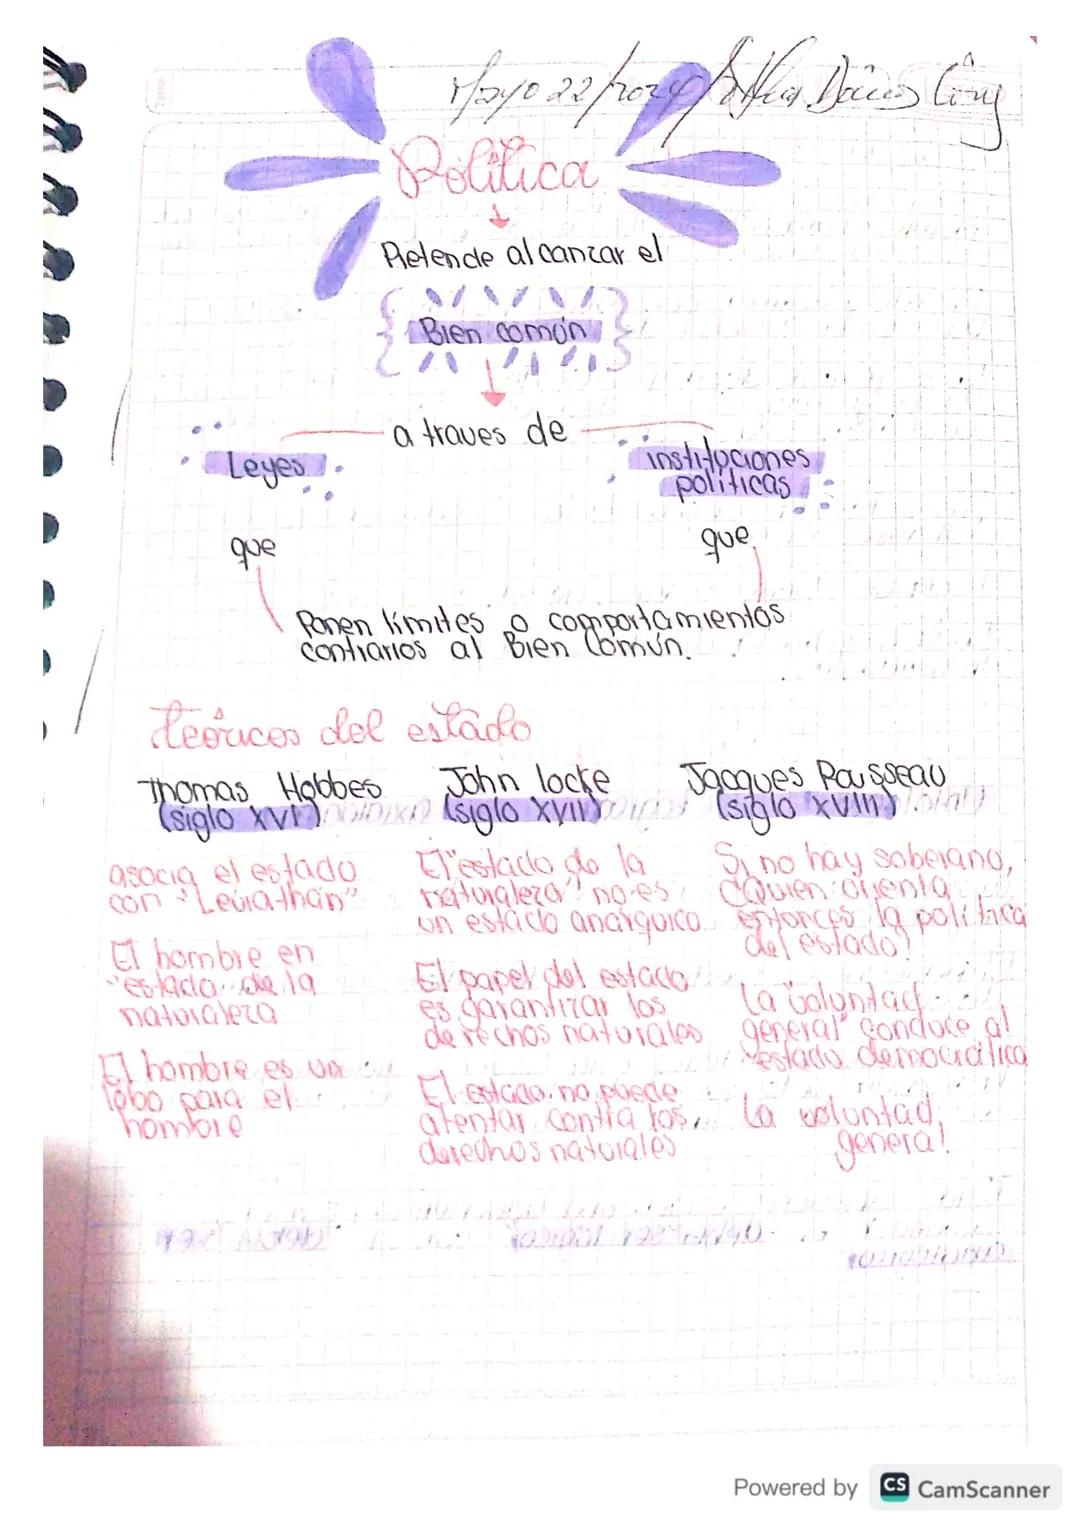 Mayo 22/2024
Política
Pretende alcanzar el
Bien común
a traves de
Leyes
instituciones
políticas
que
que
Ponen límites o comportamientos
contrarios al Bien Común.
teóricos del estado
Thomas Hobbes
(siglo XVI)
asocia el estado
con "Leviathán"
El hombre en
"estado de la
naturaleza
El hombre es un
lobo para el
hombre
John locke
(siglo XVII)
El "estado de la
naturaleza" no es
un estado anárquico
El papel del estado
es garantizar los
derechos naturales
El estado no puede
atentar contra los
derechos naturales
Jacques Rousseau
(siglo XVIII)
Si no hay soberano,
¿Quien orienta
entonces la política
del estado?
La "voluntad
general" conduce al
estado democrático
La voluntad
general
Powered by CS CamScanner